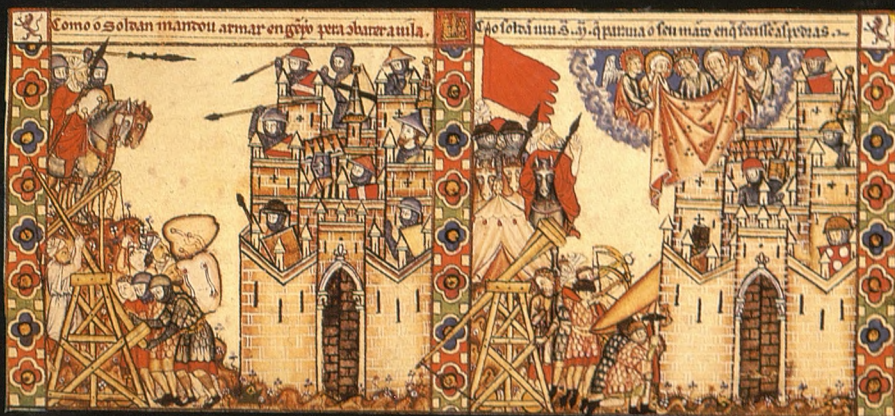 Como o Soldan mandou armar engẽyo pera conbater a uila.
Como o soldã uiu S. M. q̃ paraua o seu mãto en q̃ ferissẽ as pedras.